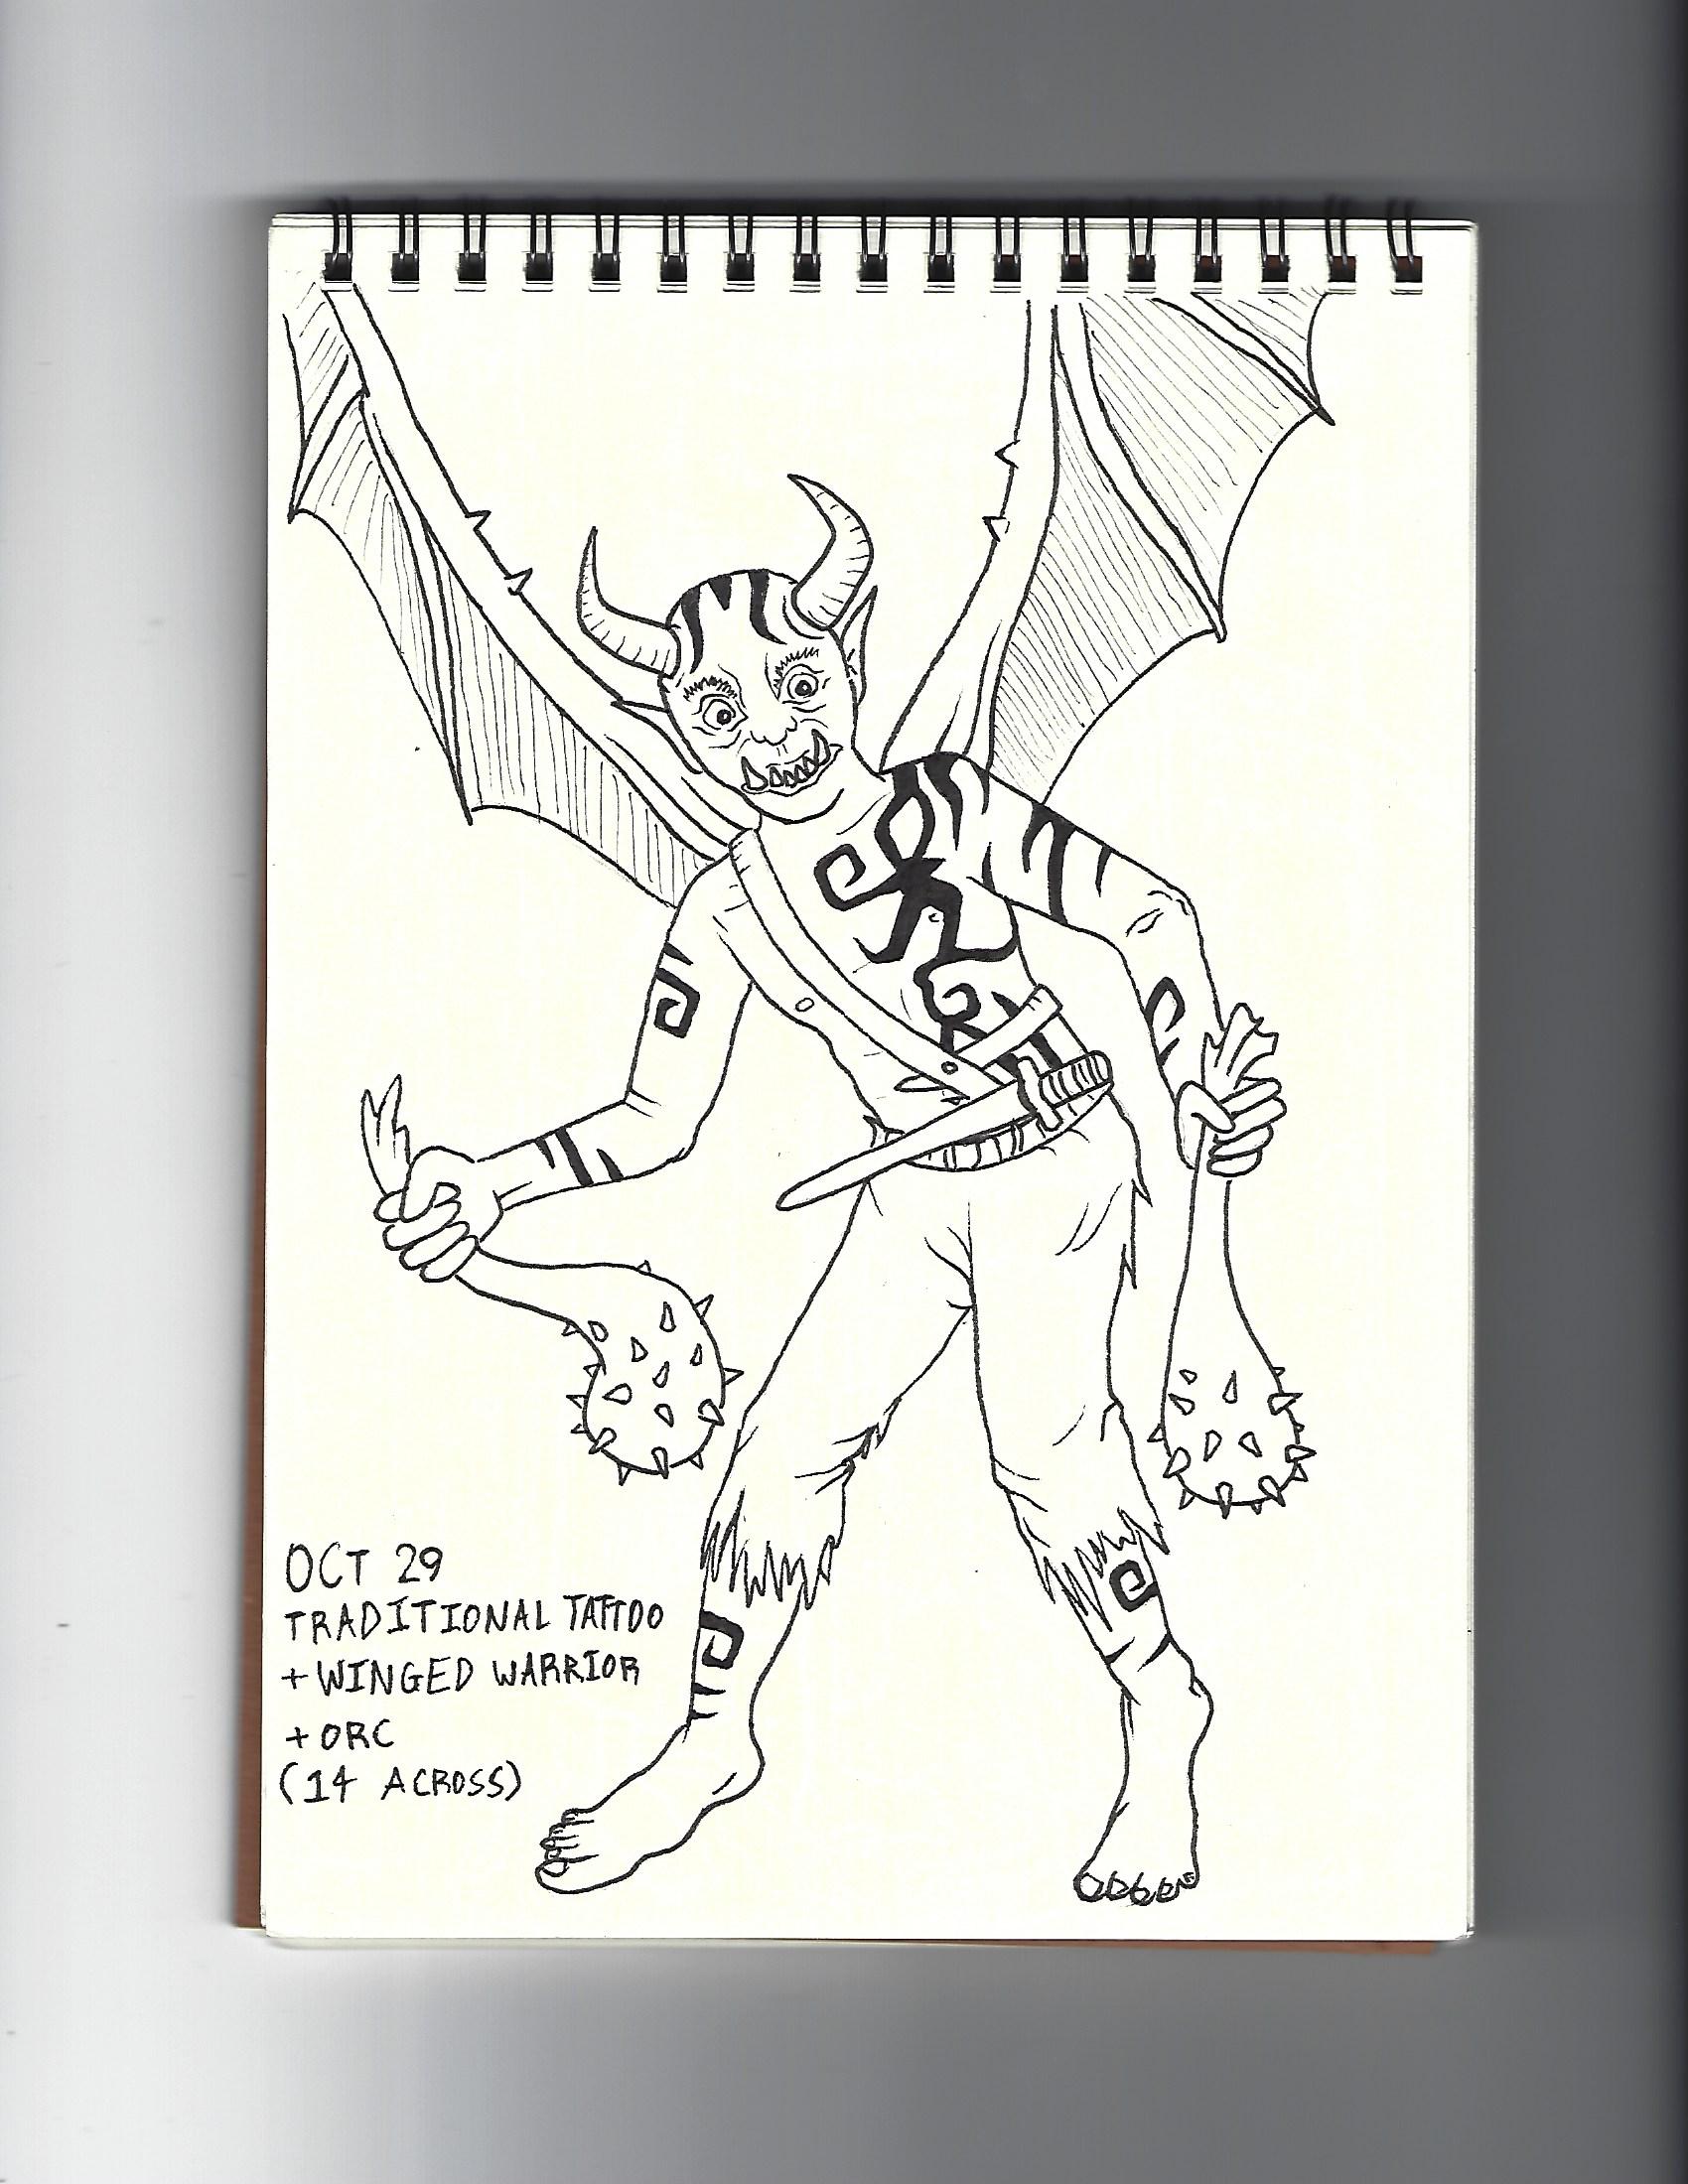 OCT 29
TRADITIONAL TATTOO
+ WINGED WARRIOR
+ ORC
(14 ACROSS)